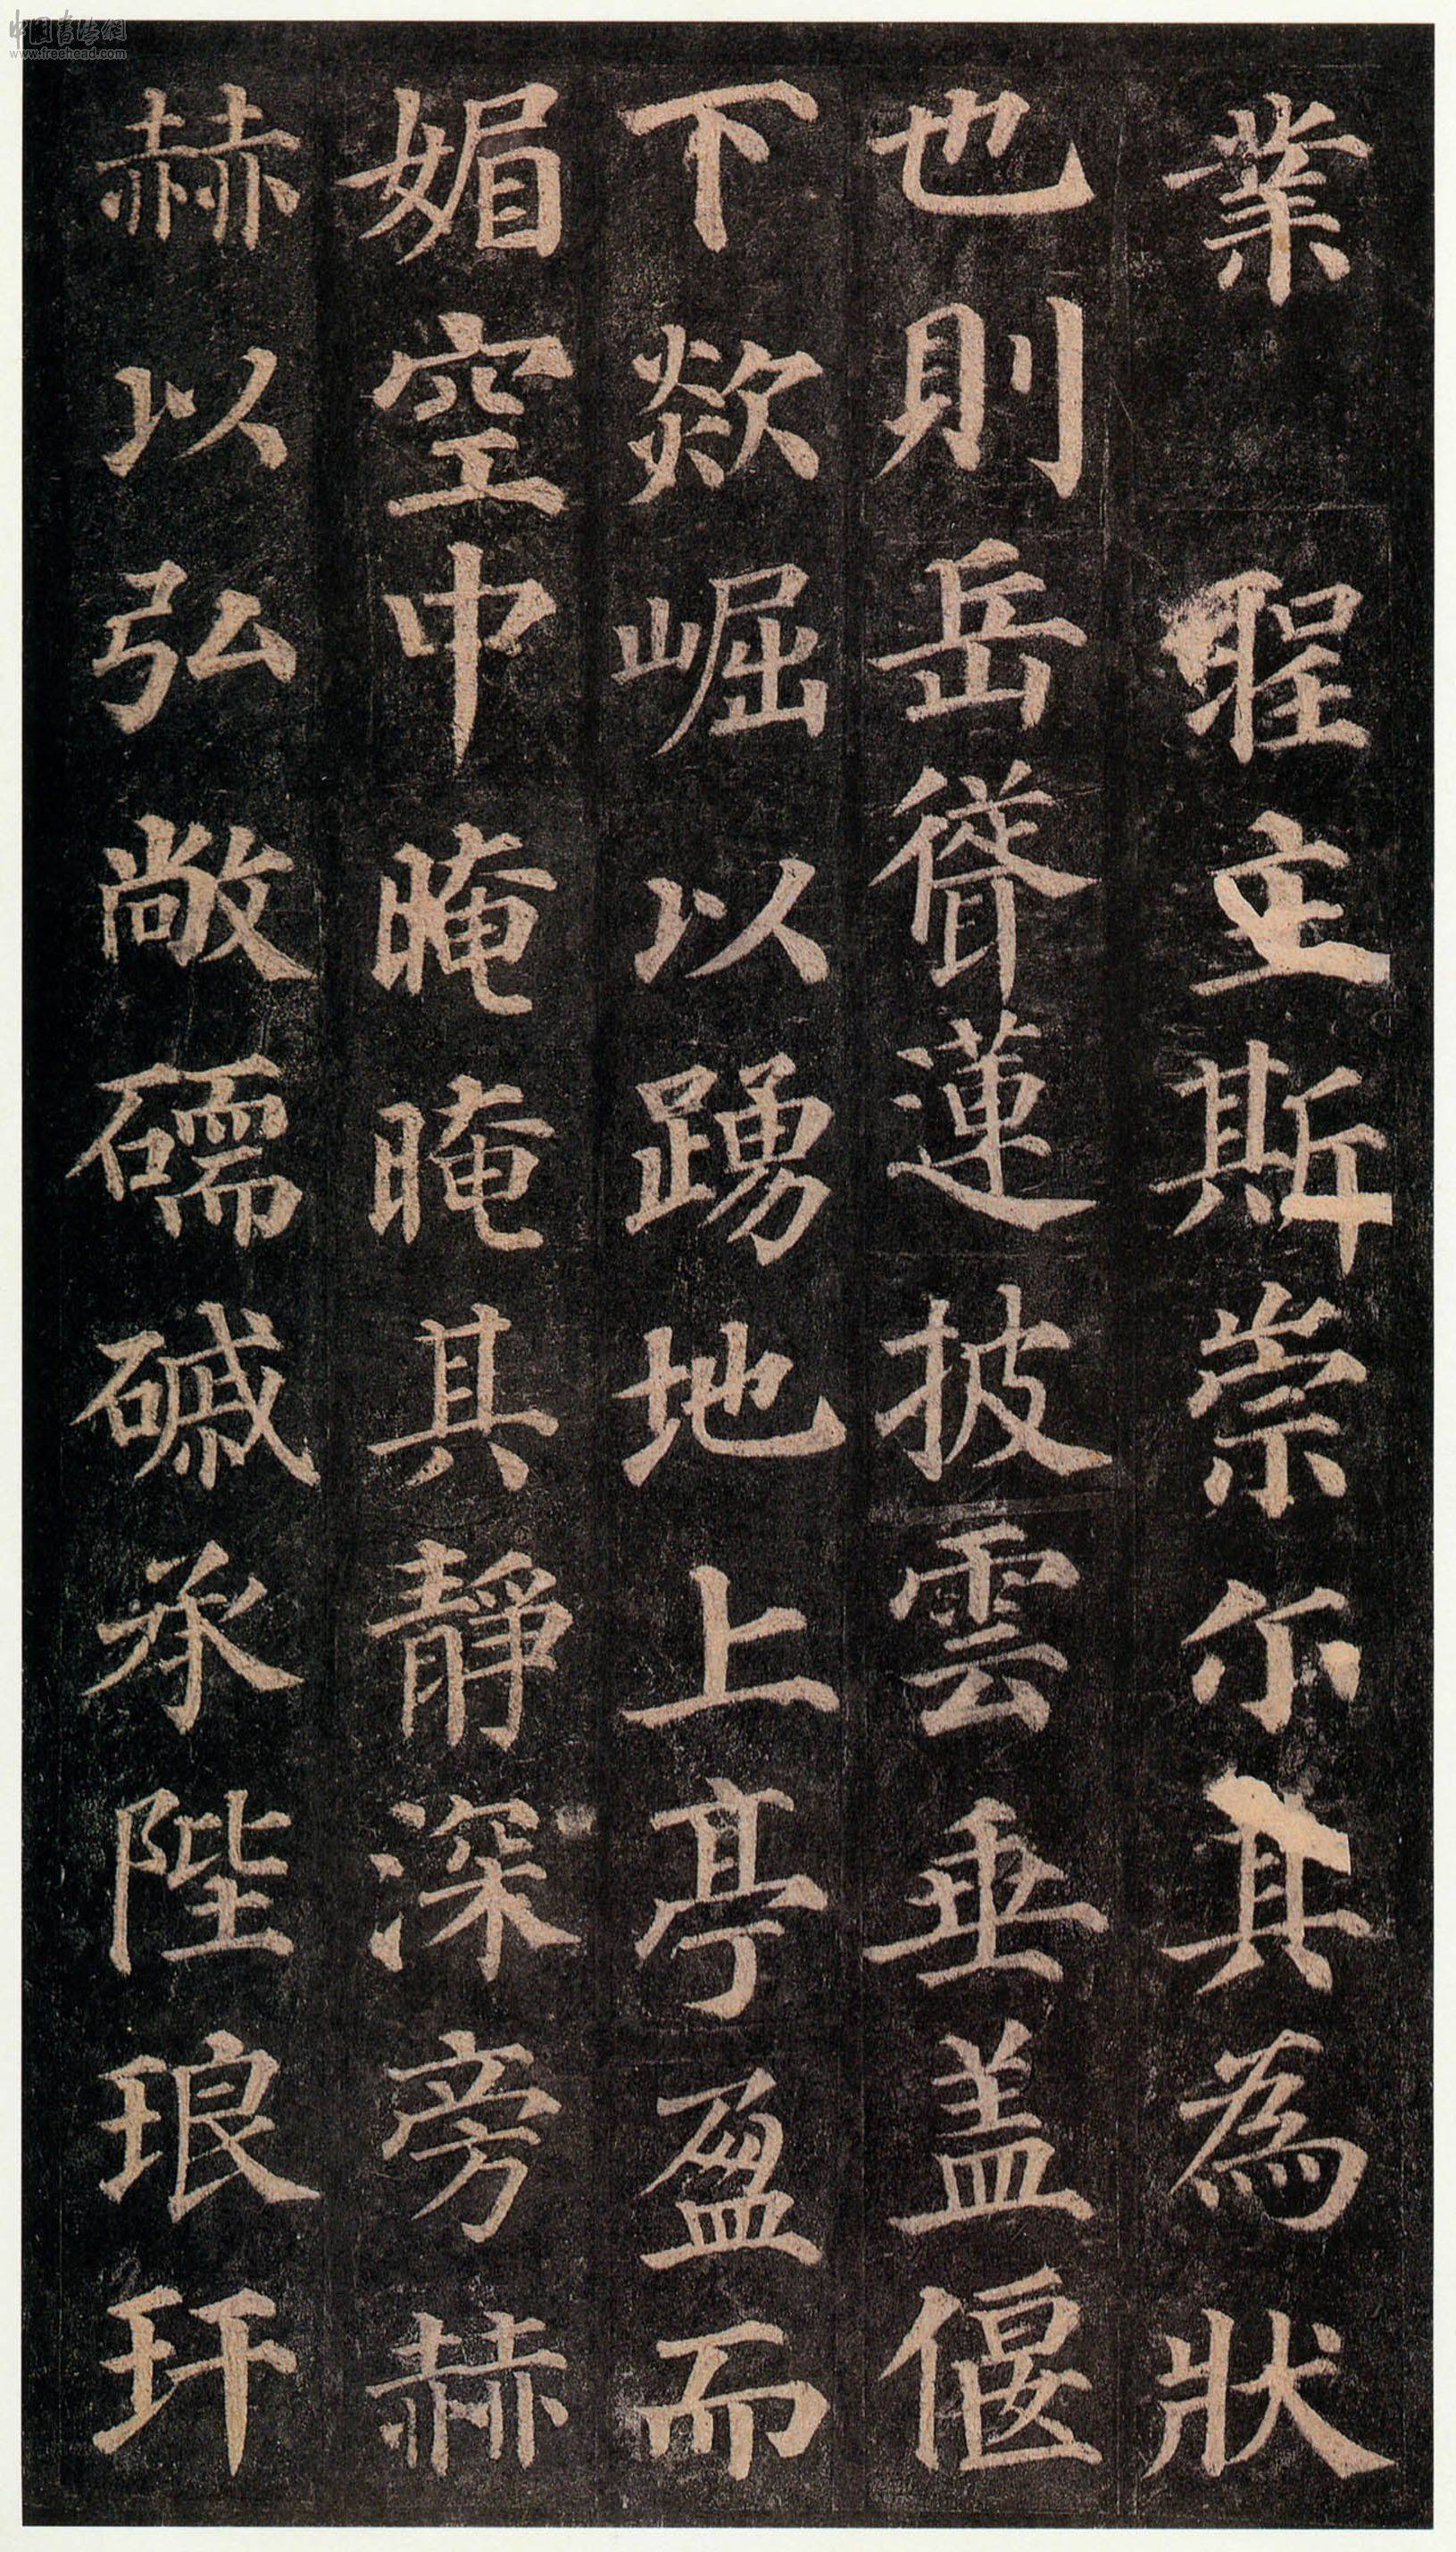 中国书法网
www.freehead.com
業 聖主斯崇尓其為狀
也則岳聳蓮披雲垂盖偃
下欻崛以踴地上亭盈而
媚空中晻晻其靜深旁赫
赫以弘敞礝磩承陛琅玕